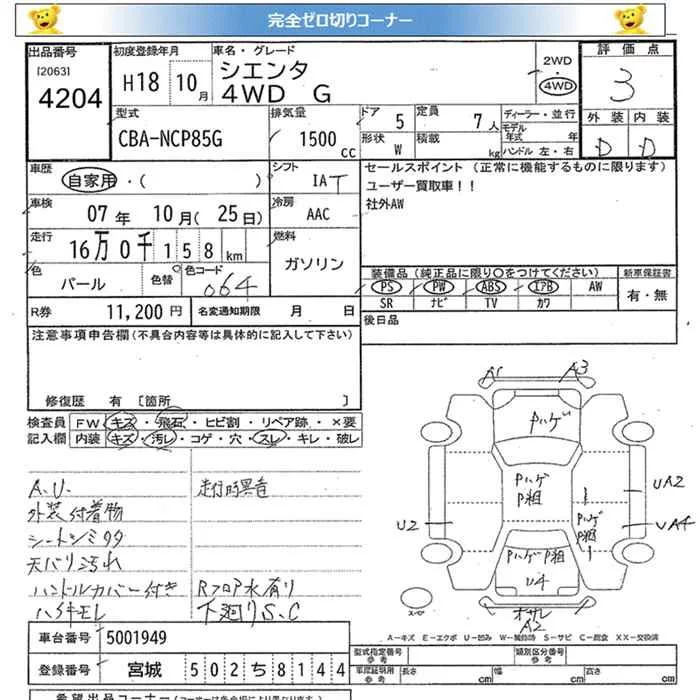 完全ゼロ切りコーナー
出品番号 初度登録年月 車名・グレード 評価点
[2063] シエンタ 2WD
4204 H18 10月 4WD G 4WD 3
型式 排気量 ドア 定員 ディーラー・並行 外装 内装
CBA-NCP85G 1500cc 5 7人 モデル年式 年
形状 積載 D D
W kg ハンドル 左・右
車歴 シフト セールスポイント (正常に機能するものに限ります)
自家用・( ) IAT ユーザー買取車!!
車検 冷房 社外AW
07年 10月(25日) AAC
走行 燃料
16万0千158km ガソリン
色 色替 色コード 装備品(純正品に限り○をつけてください) 新車保証書
パール 064 PS PW ABS エアB AW 有・無
SR ナビ TV カワ
R券 11,200円 名変通知期限 月 日 後日品
注意事項申告欄(不具合内容等は具体的に記入して下さい)
修復歴 有 [箇所 ]
検査員 FW キズ・飛石・ヒビ割・リペア跡・×要
記入欄 内装 キズ・汚レ・コゲ・穴・スレ・キレ・破レ
A.U. 走行時異音
外装付着物
シートシミタタ
天バリ汚れ
ハンドルカバー付き Rフロア水有り
ハイキモレ 下廻りS.C
A1 A3
Pハゲ
Pハゲ
P粗
UA2
U2 Pハゲ UA4
P粗
Pハゲ P粗
U4
スペア オサレ
A2
A-キズ E-エクボ U-凹み W-鈑金跡 S-サビ C-腐食 XX-交換済
車台番号 5001949
登録番号 宮城 502ち8144
型式指定番号 参考 類別区分番号 参考
車庫証明用 参考 長さ cm 幅 cm 高さ cm
希望出品コーナー